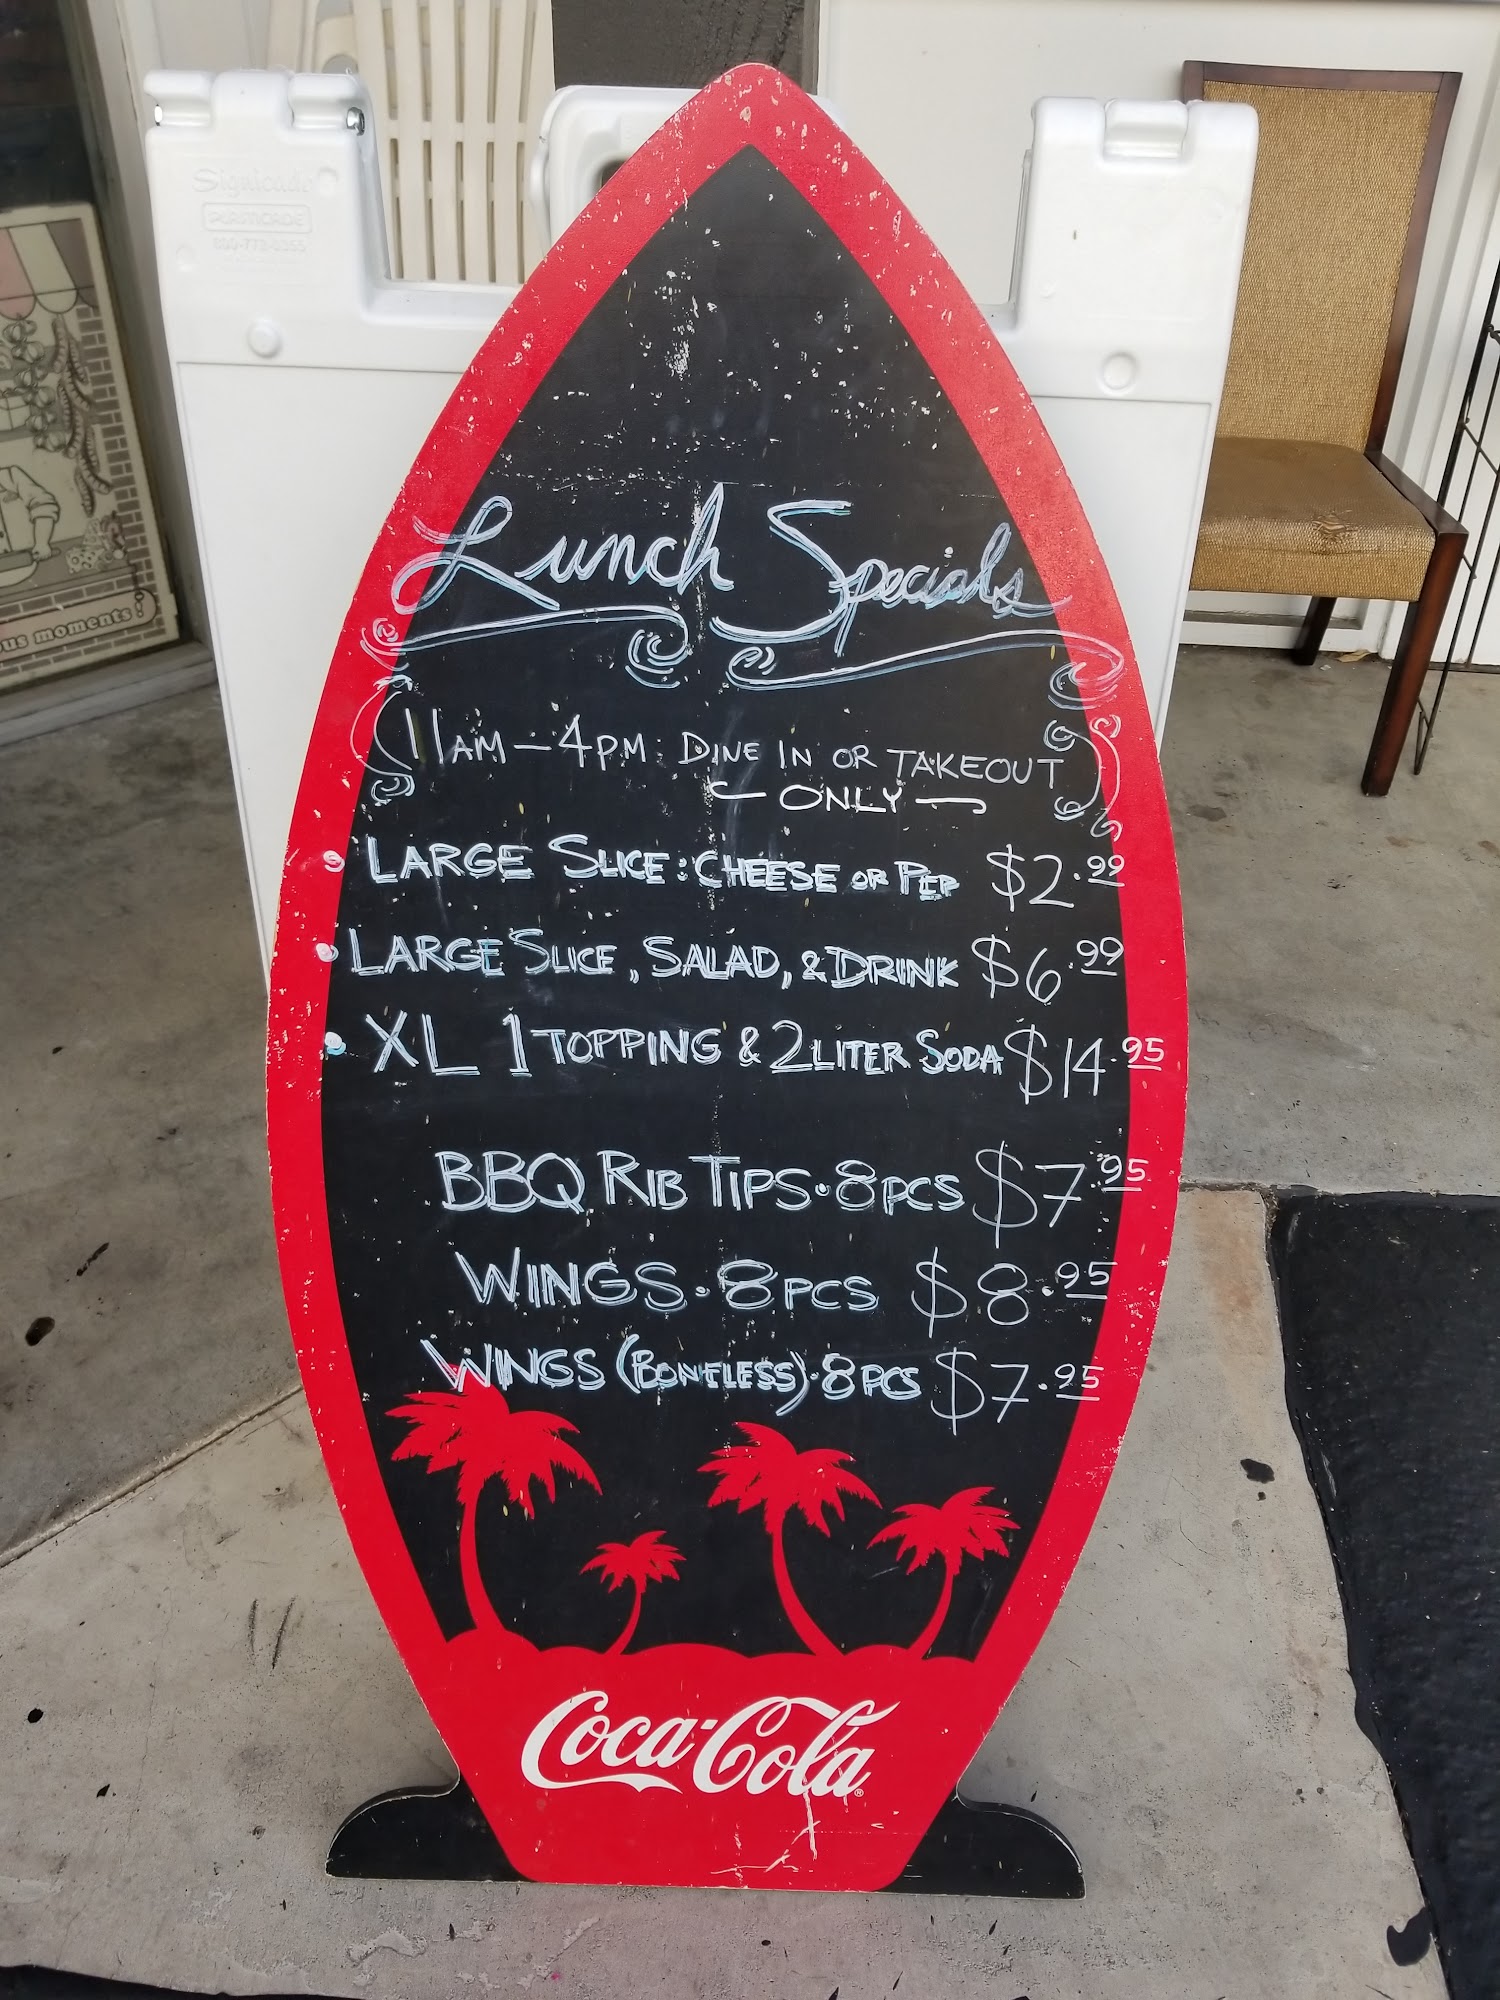 Signicade
PLASTICADE
Lunch Specials
11AM - 4PM: DINE IN OR TAKEOUT
ONLY
• LARGE SLICE: CHEESE OR PEP $2.99
• LARGE SLICE, SALAD, & DRINK $6.99
• XL 1 TOPPING & 2 LITER SODA $14.95
BBQ RIB TIPS • 8PCS $7.95
WINGS • 8PCS $8.95
WINGS (BONELESS) • 8PCS $7.95
ous moments
Coca-Cola®